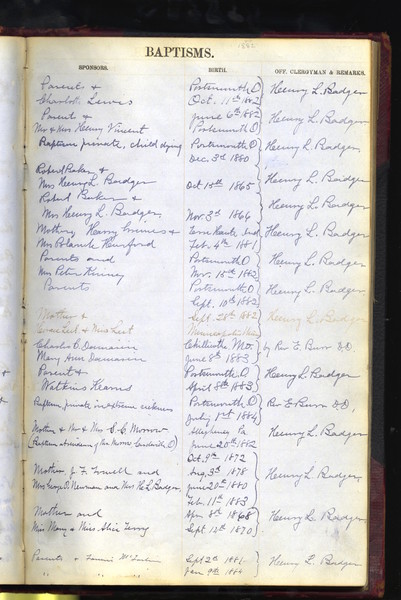 1882
BAPTISMS.
SPONSORS. BIRTH. OFF. CLERGYMAN & REMARKS.
Parent & Portsmouth O Henry L. Badger
Charlot. Lewis Oct. 11th 1882
Parent & June 6th 1882 Henry L. Badger
Mr & Mrs Henry Vincent Portsmouth O
Baptism private, child dying Portsmouth O Henry L. Badger,
Dec. 3d 1880
Robert Baker &
Mrs Henry L. Badger Oct 15th 1865 Henry L. Badger
Robert Baker & Henry L. Badger
Mrs Henry L. Badger, Nov. 3d 1866
Mother, Harry & Terre Haute Ind Henry L. Badger
Mrs Blanche Hurford Feb. 4th 1881
Parents and Portsmouth O Henry L. Badger
Mrs Peter Kinney Nov. 15th 1882
Parents Portsmouth O Henry L. Badger
Sept. 10th 1882
Mother & Sept. 28th 1882 Henry L. Badger
Minneapolis
Charles C. Damarin Chillicothe Mo. by Rev E. Burr D.D.
Mary Ann Damarin June 8th 1883
Parent & Portsmouth O. Henry L. Badger
Watkins Kearns April 8th 1883
Baptism private in extreme sickness Portsmouth O Rev E Burr D.D.
July 1st 1884
Mother & Mr & Mrs Allegheny Pa Henry L. Badger
June 20th 1882
Oct. 9th 1872
Mother J. F. and Aug. 3d 1878 Henry L. Badger,
Mrs Newman and Mrs H L. Badger, June 20th 1880
Feb. 11th 1883
Mother and Apr 8th 1868 Henry L. Badger
Miss Mary & Miss Alice Terry Sept. 12th 1870
Parents & Sept 2d 1881 Henry L. Badger
" " Jan 9th 1884